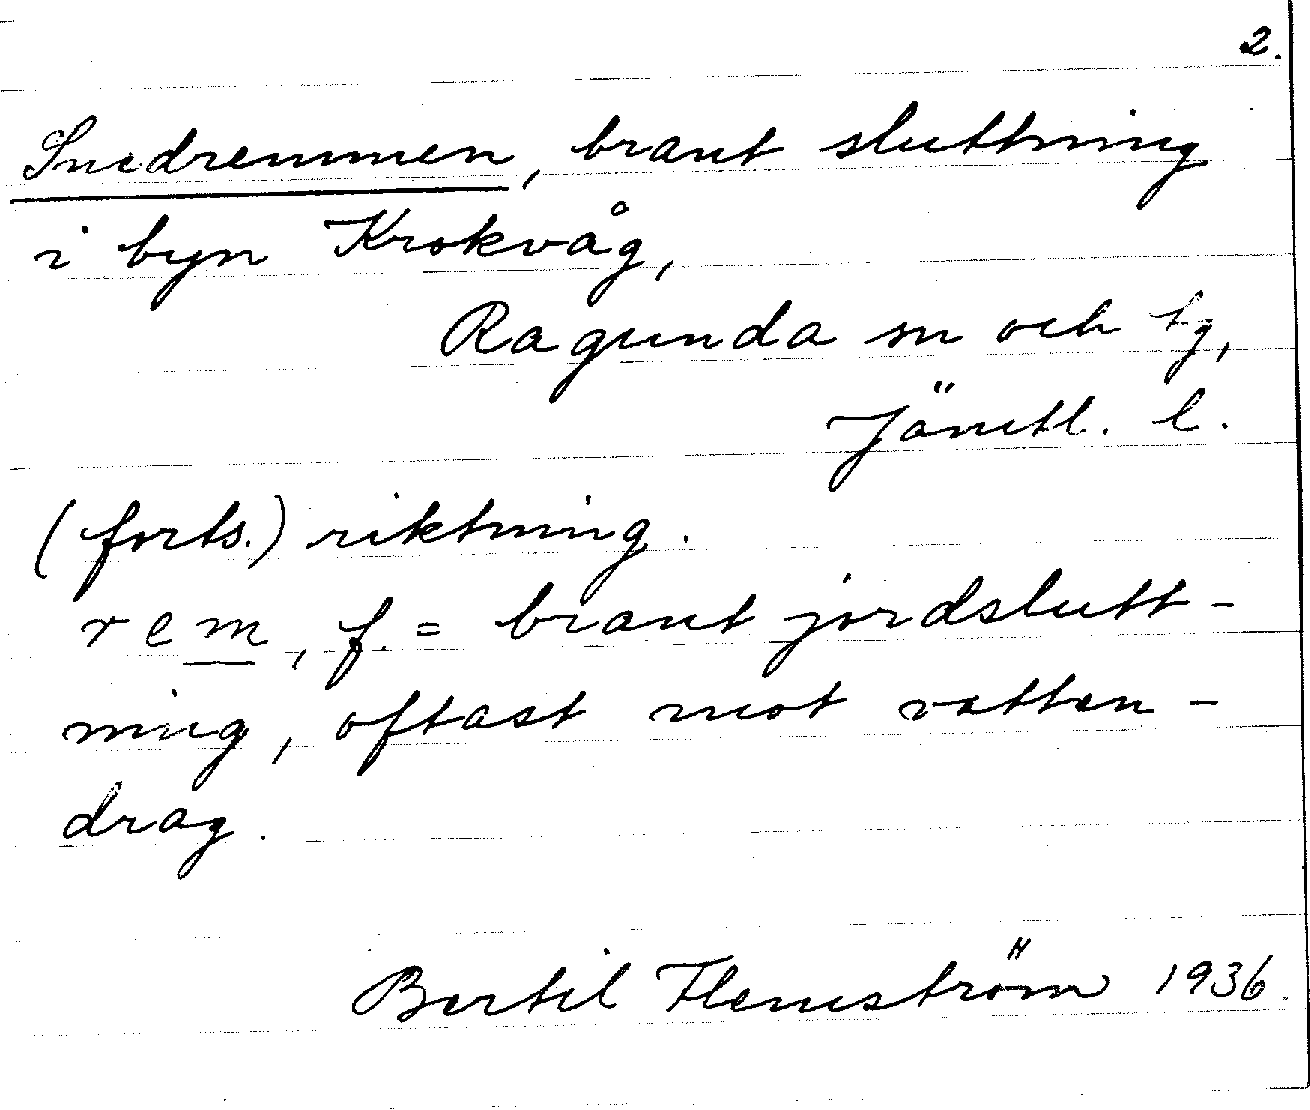 2.
Snedremmen, brant sluttning
i byn Krokvåg,
Ragunda sn och tg,
Jämtl. l.
(forts.) riktning.
rem, f. = brant jordslutt-
ning, oftast mot vatten-
drag.
Bertil Flemström 1936.